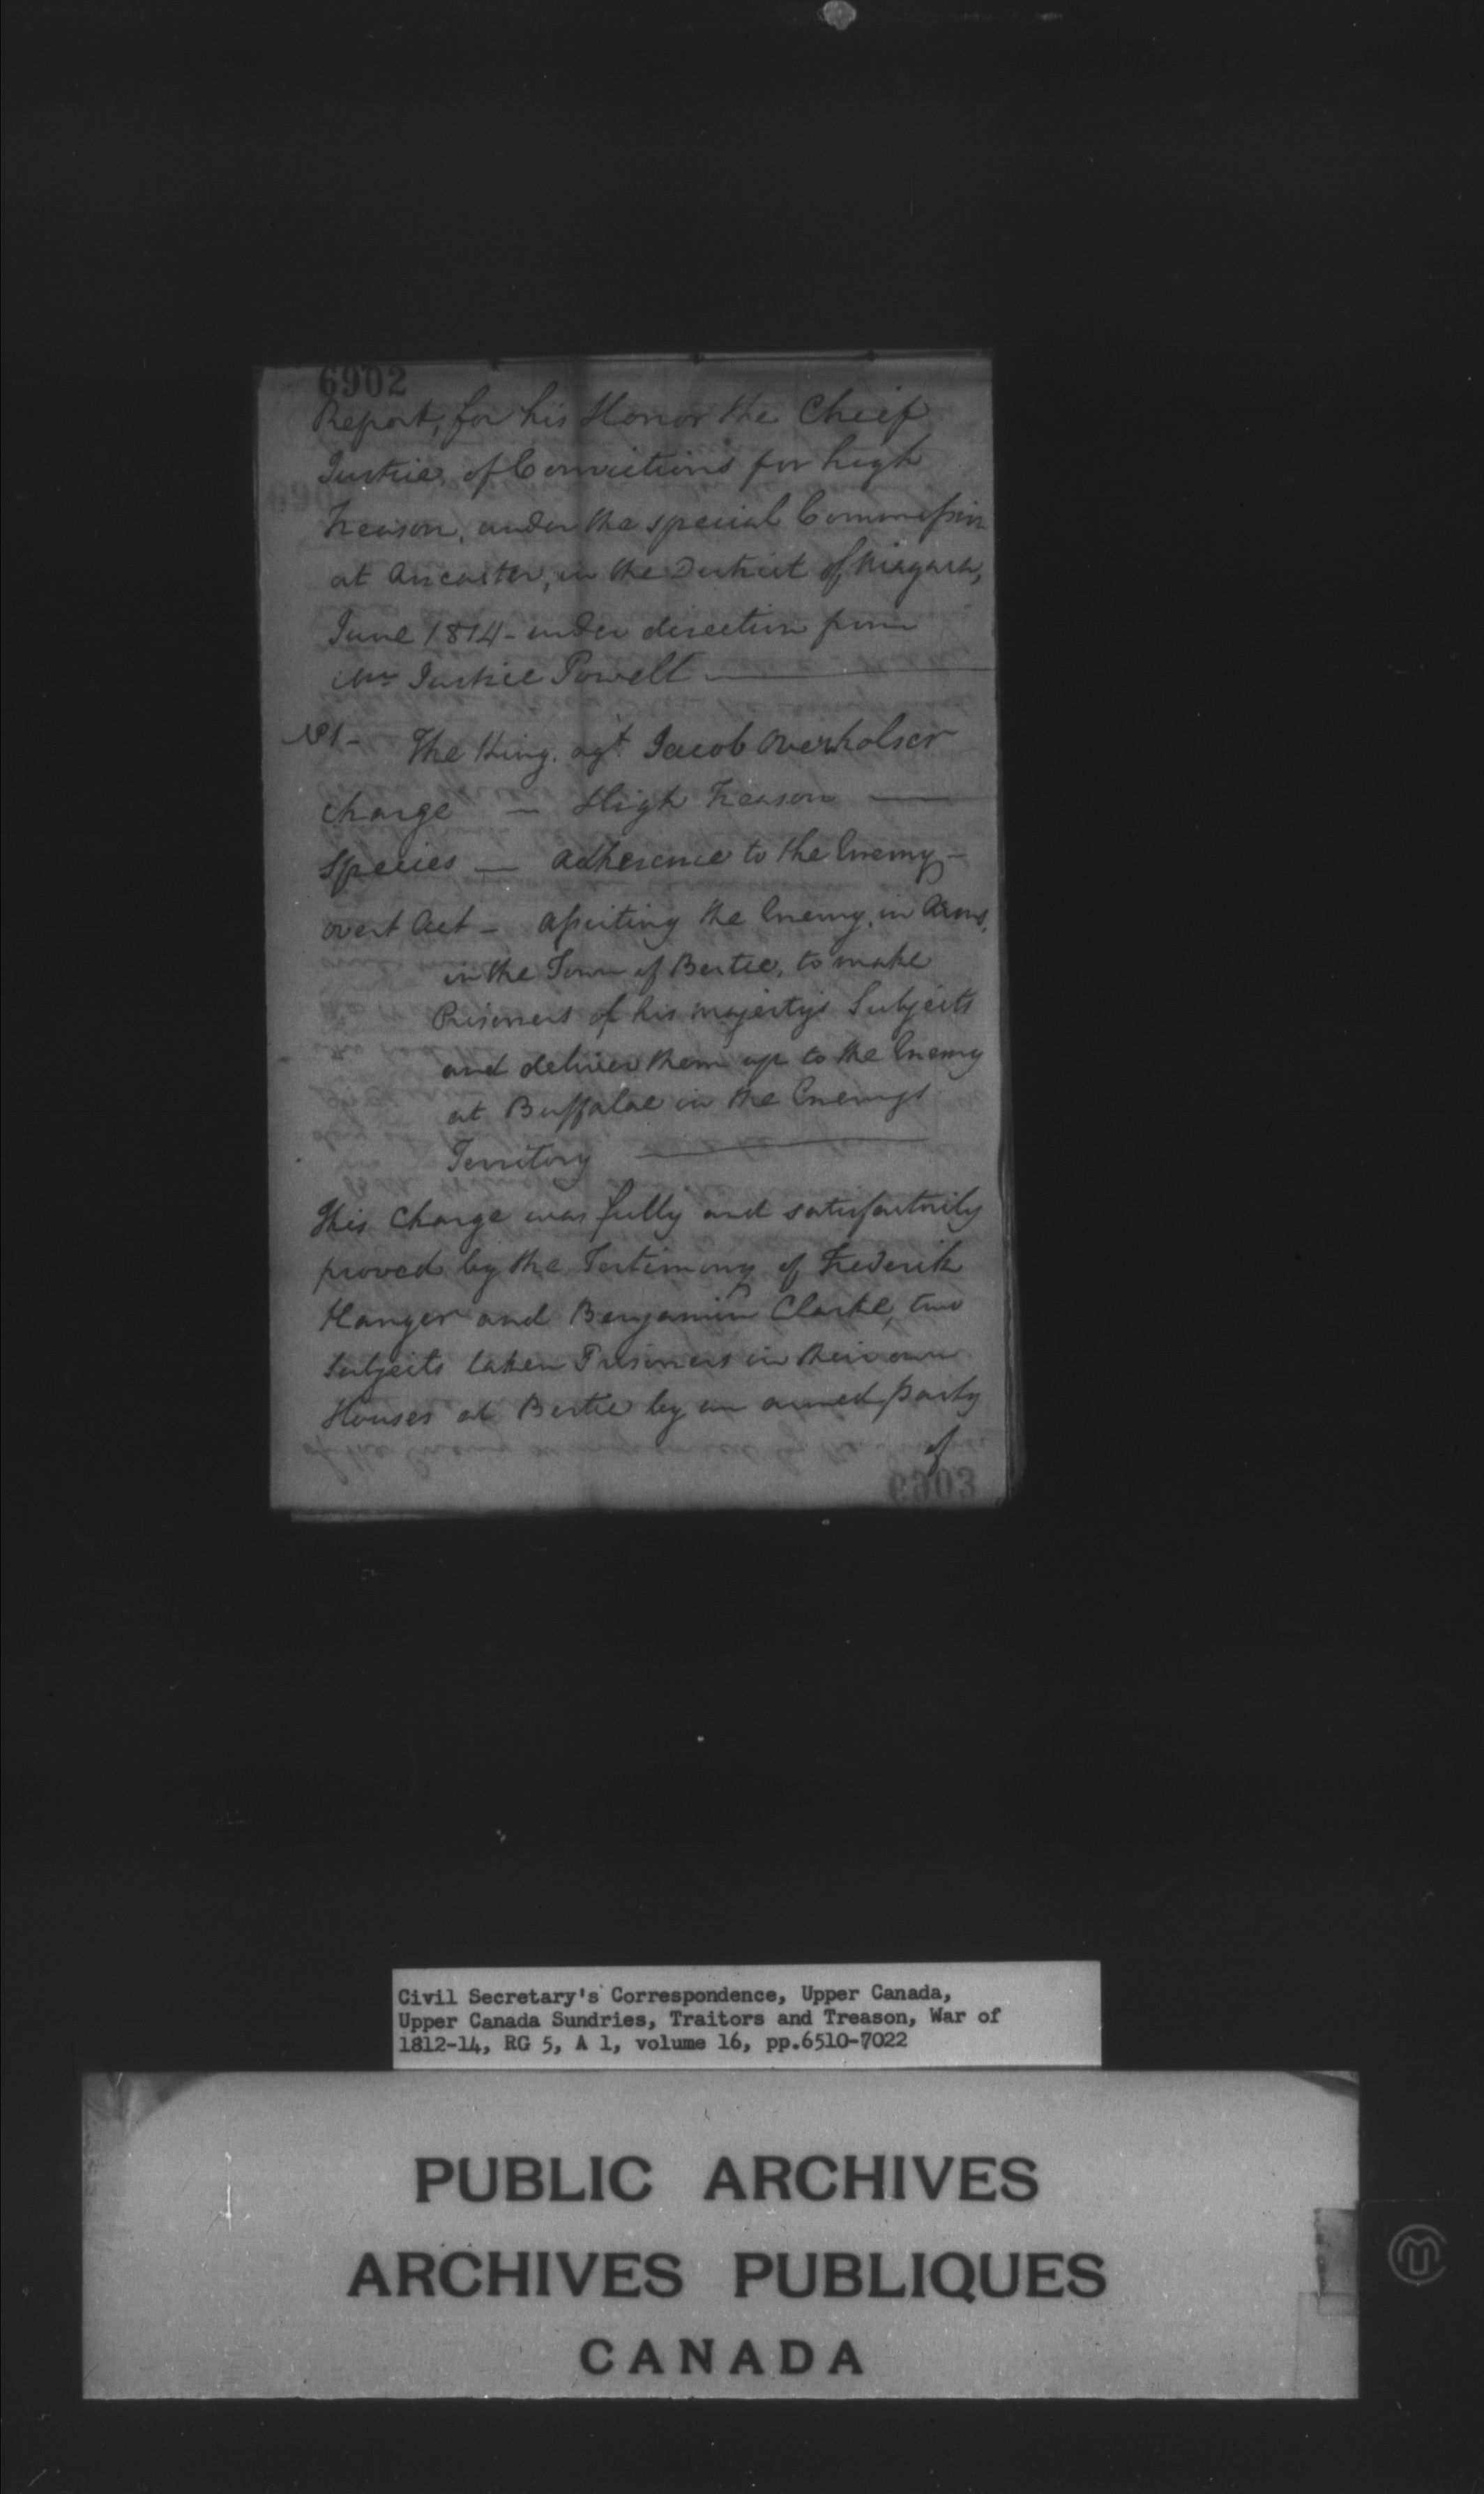 6902
Report, for his Honor the Cheif
Justice, of Convictions for high
Treason, under the special Commission
at Ancaster, in the District of Niagara,
June 1814 - under direction from
Mr Justice Powell —
No 1 - The King. agt. Jacob Overholser
Charge — High Treason —
Species — Adherence to the Enemy -
overt Act - Assisting the Enemy, in Arms,
in the Town of Bertie, to make
Prisoners of his majestys Subjects
and deliver them up to the Enemy
at Buffaloe in the Enemys
Territory —
This Charge was fully and satisfactorily
proved by the Testimony of Frederik
Hanger and Benjamin Clarke, two
Subjects taken Prisoners in their own
Houses at Bertie by an armed party
of
6903
Civil Secretary's Correspondence, Upper Canada,
Upper Canada Sundries, Traitors and Treason, War of
1812-14, RG 5, A 1, volume 16, pp.6510-7022
PUBLIC ARCHIVES
ARCHIVES PUBLIQUES
CANADA